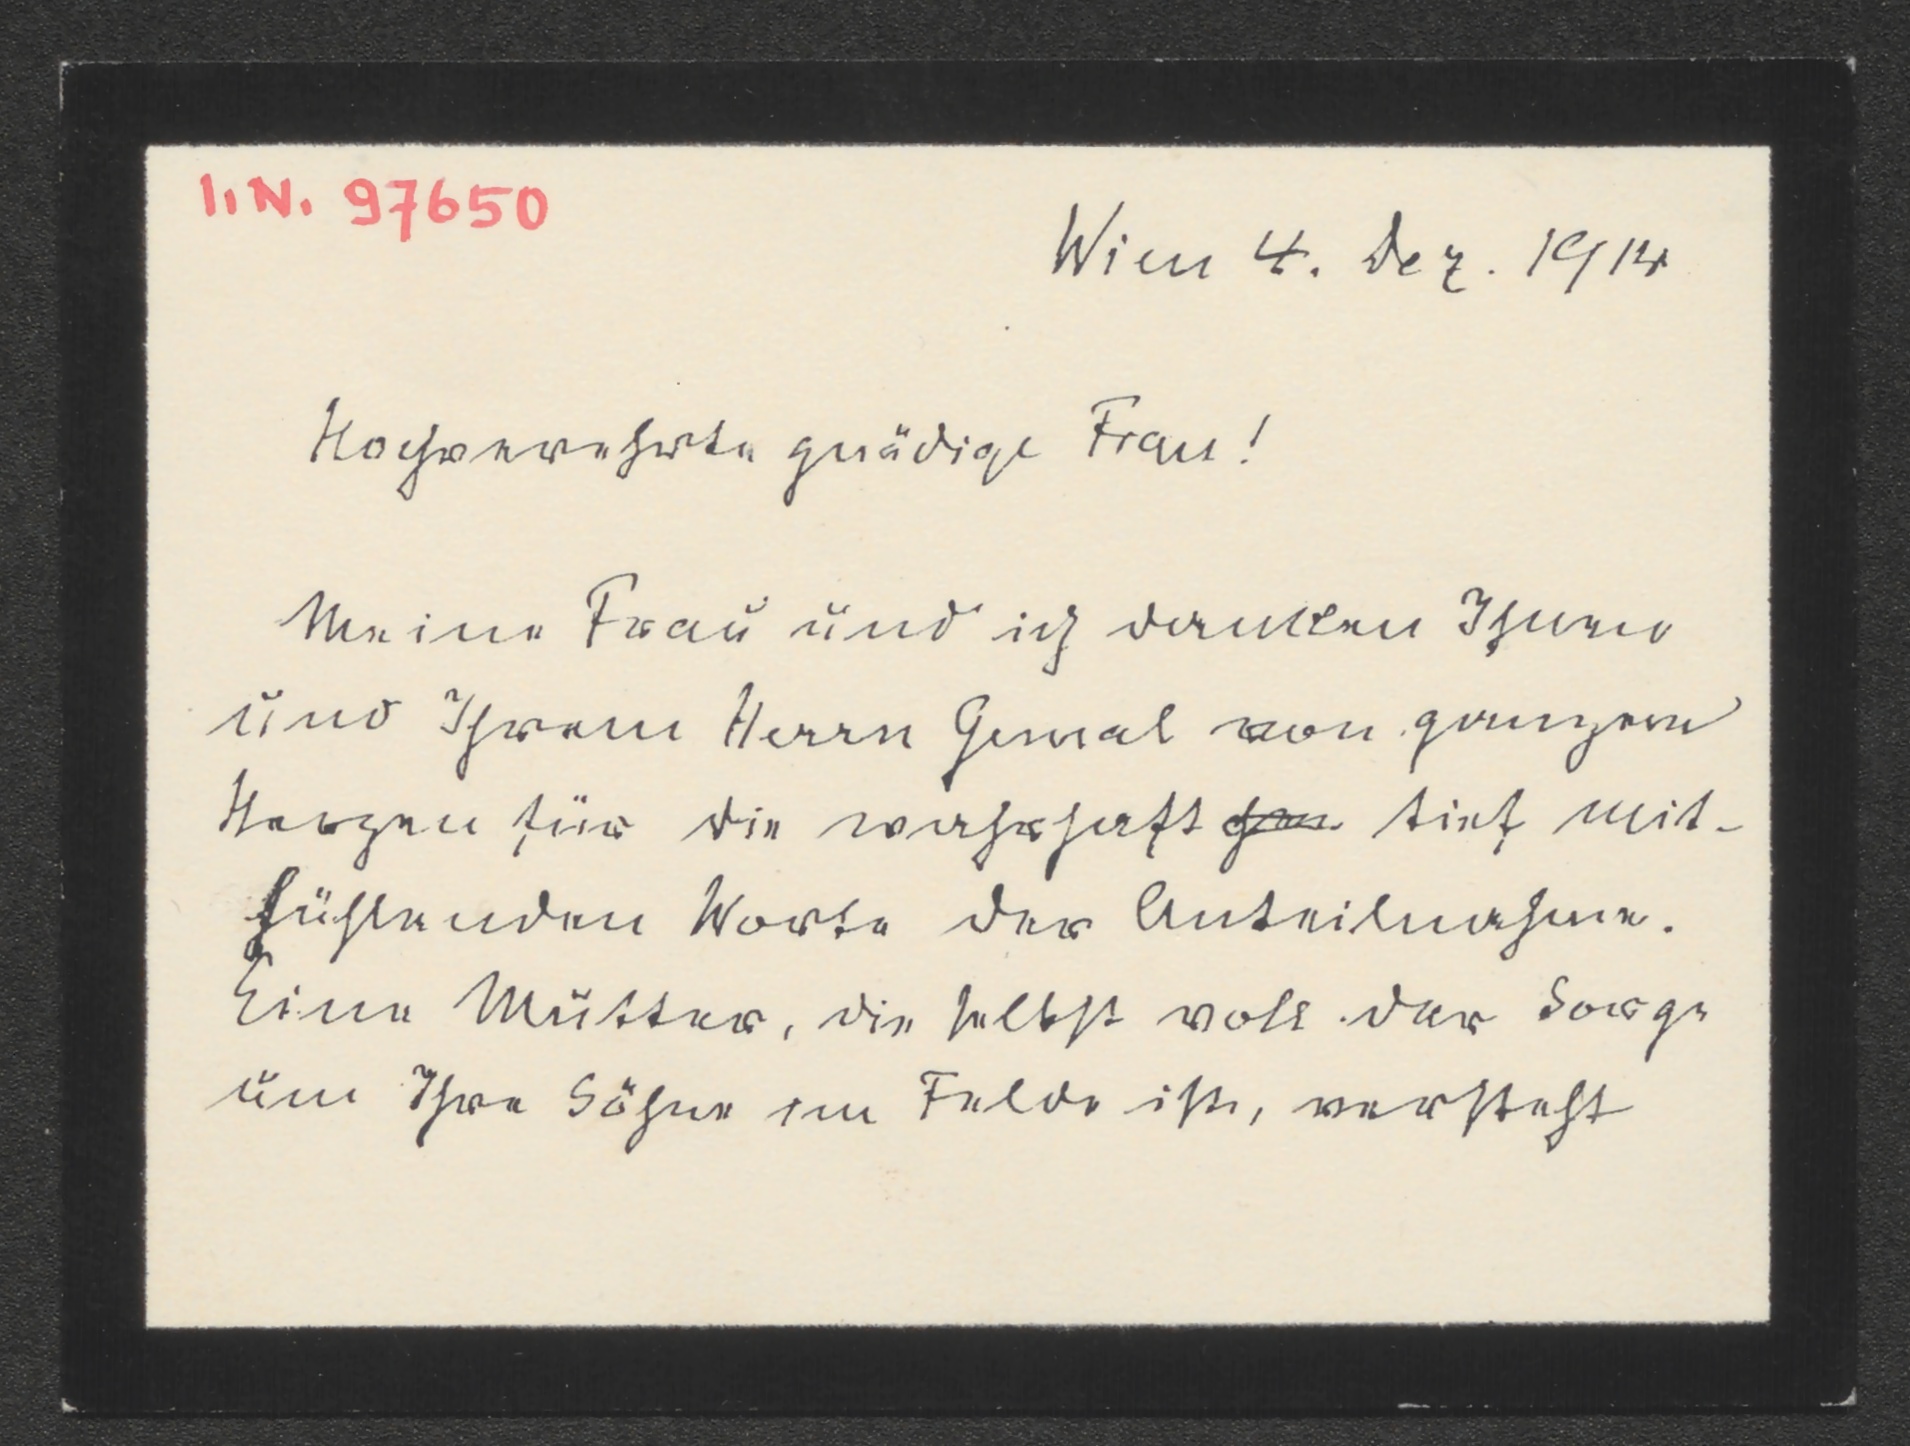 I.N. 97650
Wien 4. Dez. 1914
Hochverehrte gnädige Frau!
Meine Frau und ich danken Ihnen
und Ihrem Herrn Gemal von ganzem
Herzen für die wahrhaft tief mit-
fühlenden Worte der Anteilnahme.
Eine Mutter, die selbst voll der Sorge
um Ihre Söhne im Felde ist, versteht